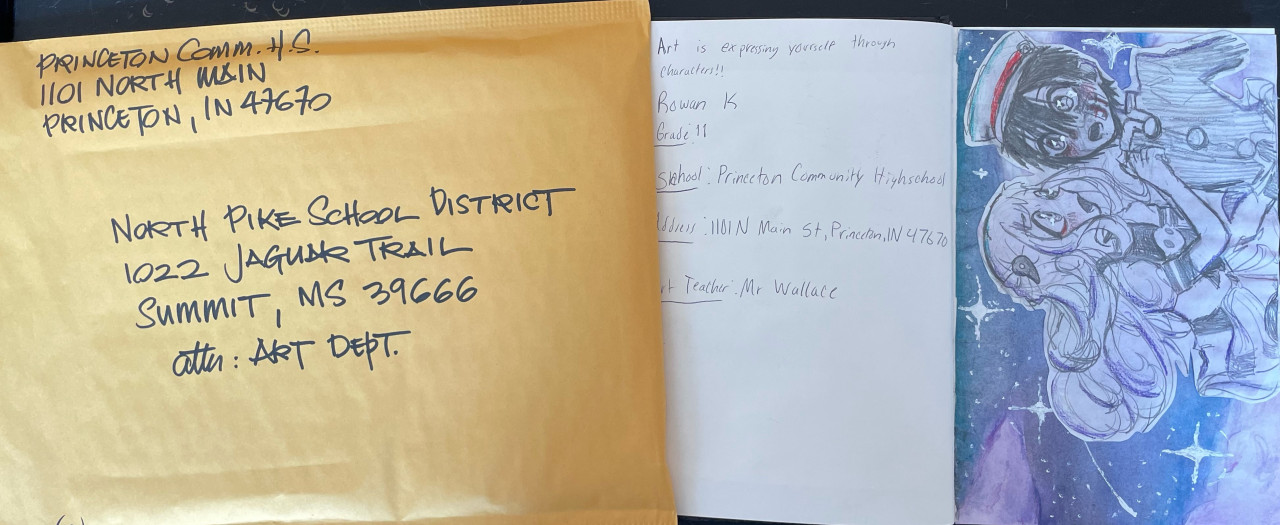 PRINCETON COMM. H.S.
1101 NORTH MAIN
PRINCETON, IN 47670
NORTH PIKE SCHOOL DISTRICT
1022 JAGUAR TRAIL
SUMMIT, MS 39666
attn: ART DEPT.
Art is expressing yourself through
characters!!
Rowan K
Grade: 11
School: Princeton Community Highschool
Address: 1101 N Main St, Princeton, IN 47670
Art Teacher: Mr Wallace